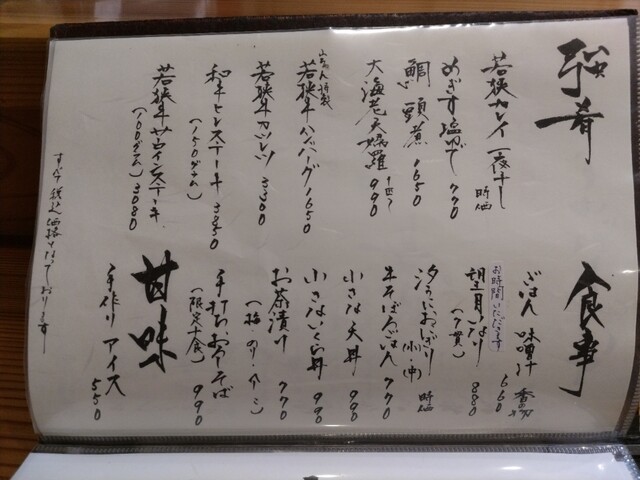 強肴
若狭カレイ一夜干し 時価
めぎす塩焼 770
鯛 頭煮 1650
大海老天婦羅 990
若狭牛ハンバーグ 1650
若狭牛カツレツ 3300
和牛ヒレステーキ (150グラム) 3850
若狭牛サーロインステーキ (100グラム) 3080
食事
ごはん 味噌汁 香の物 660
お時間いただきます
(7貫) 880
おにぎり (小・中) 時価
生そばごはん 770
小さな天丼 990
小さないくら丼 990
お茶漬け (梅 のり ) 770
手打ちおろしそば (限定十食) 990
甘味
手作りアイス 550
すべて税込価格となっております